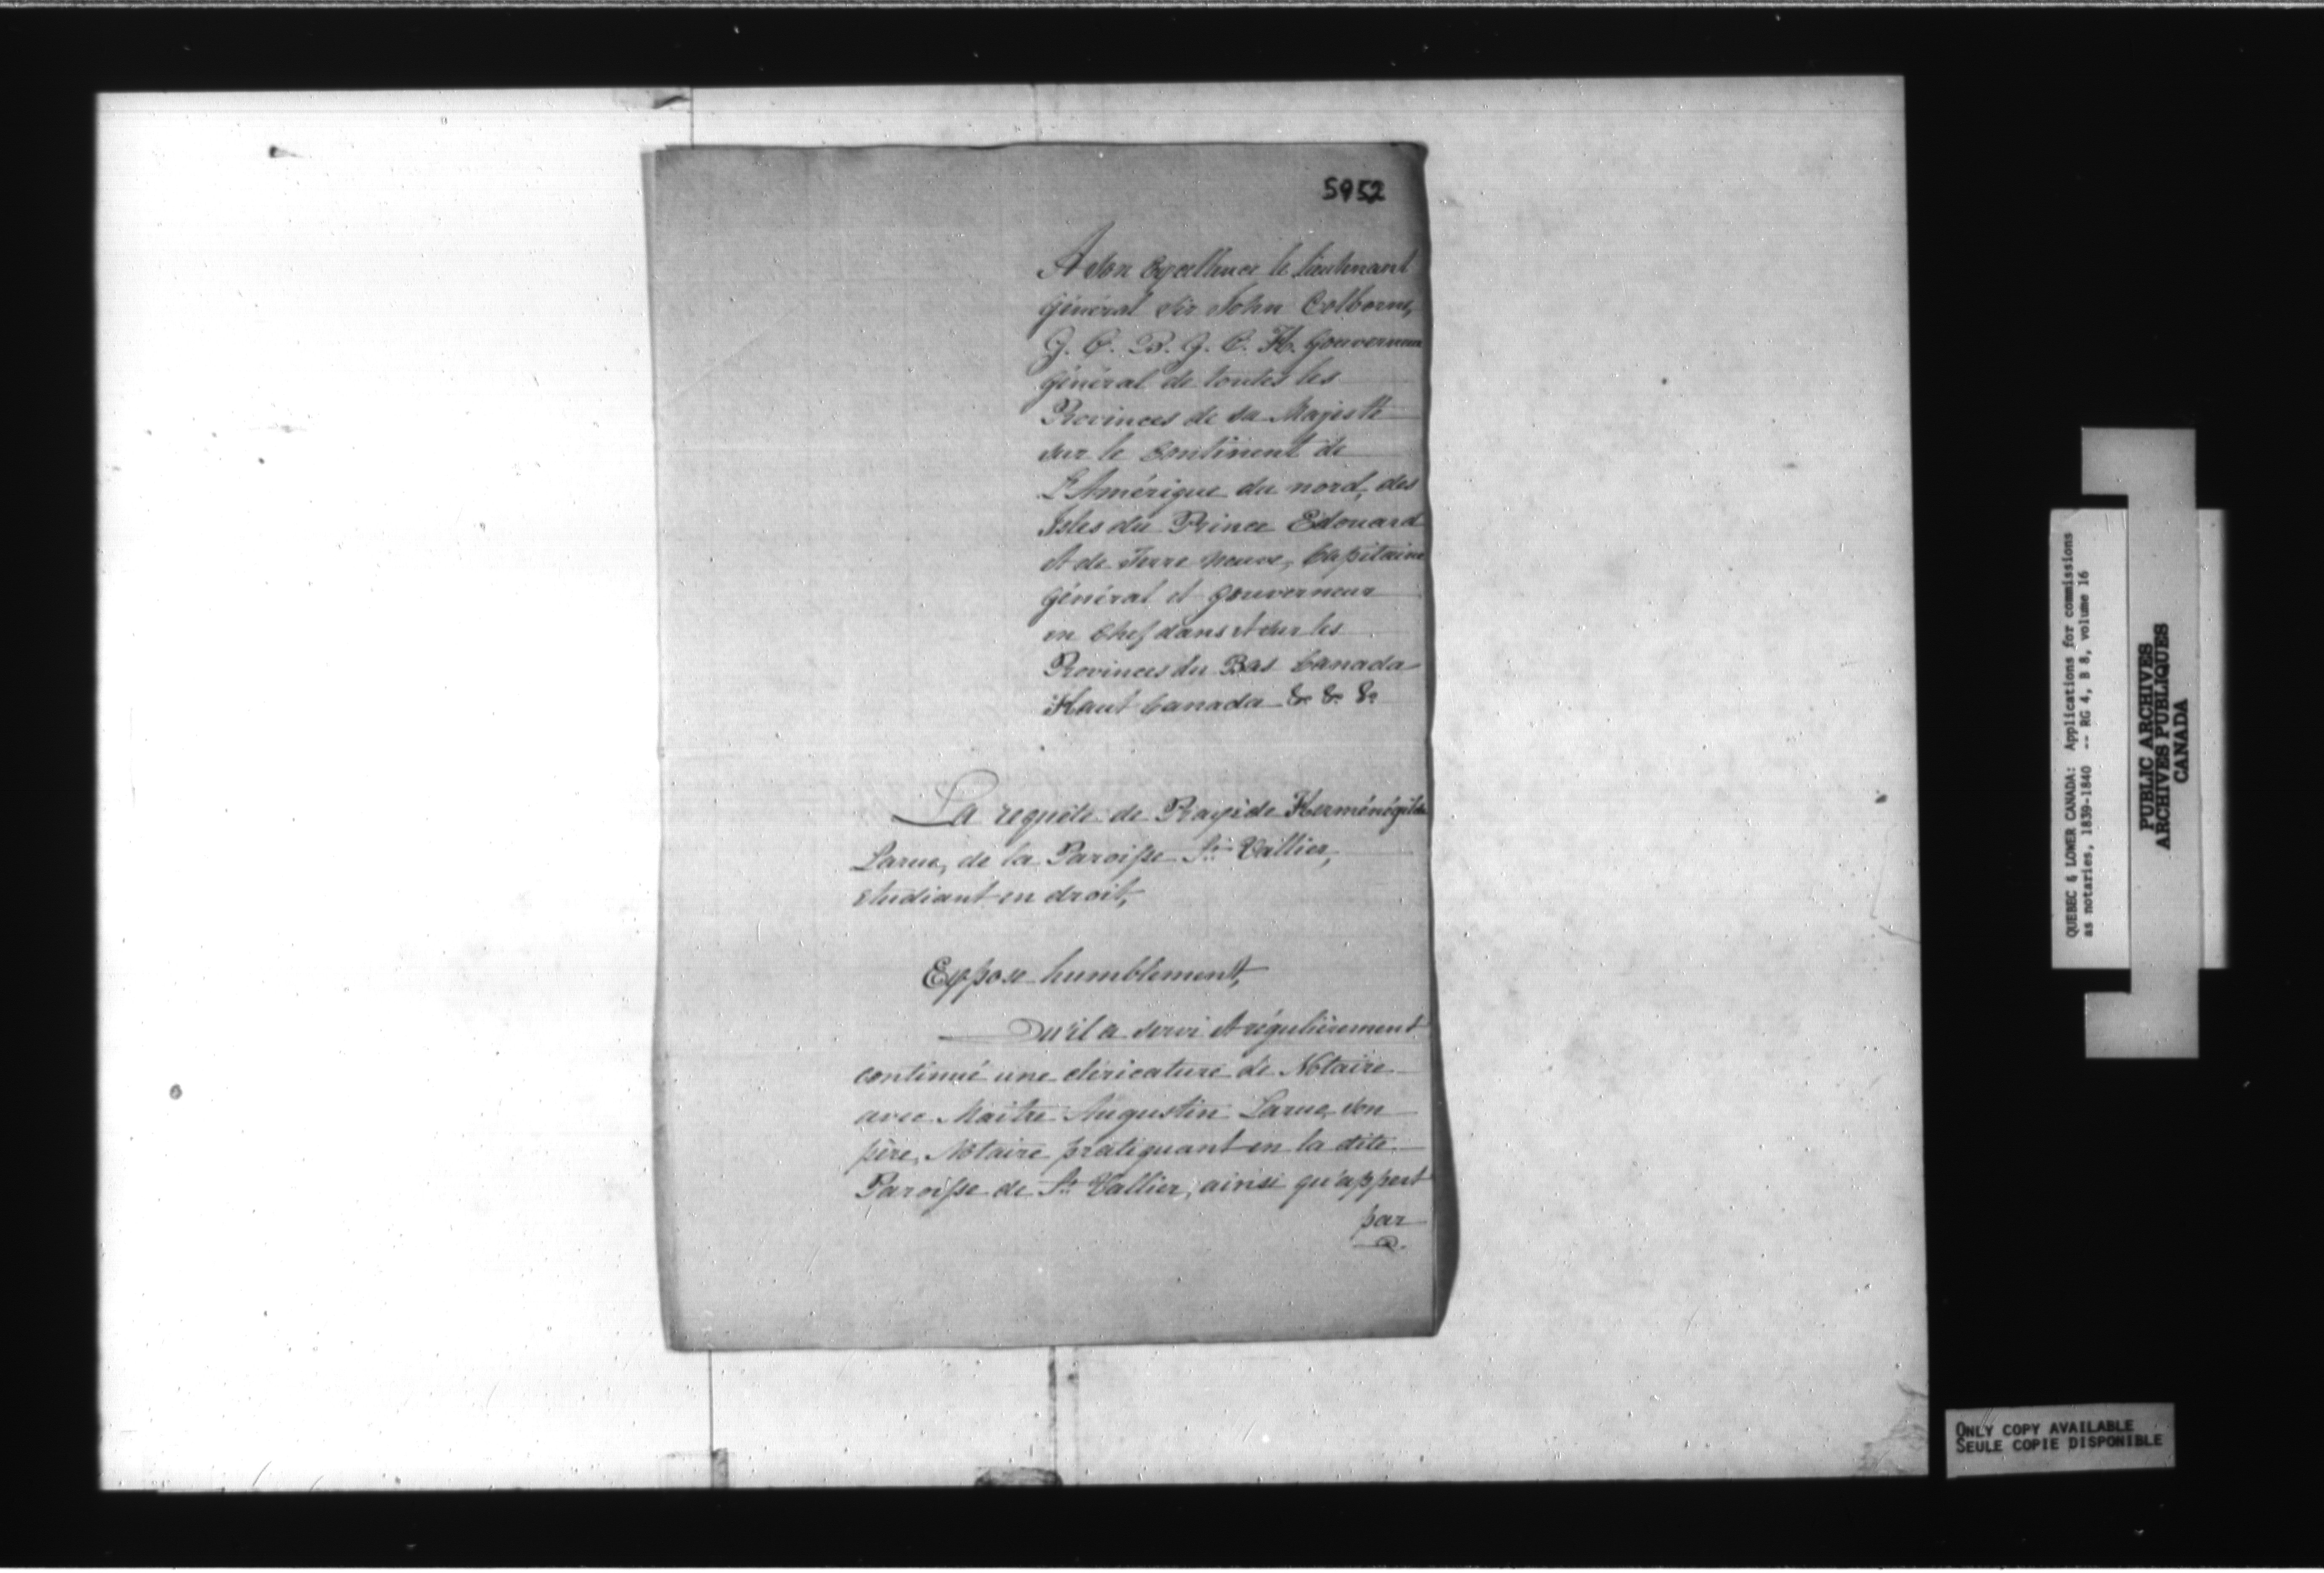 5952
A Son Excellence le Lieutenant
Général Sir John Colborne,
G. C. B. G. C. H. Gouverneur
Général de toutes les
Provinces de Sa Majesté
sur le Continent de
L'Amérique du nord, des
Isles du Prince Edouard
et de Terre neuve, Capitaine
Général et Gouverneur
en Chef dans et sur les
Provinces du Bas Canada
Haut Canada &. &. &.
La requête de Herménégilde
Larue, de la Paroisse St. Vallier,
etudiant en droit,
Expose humblement,
Qu'il a servi et régulièrement
continué une cléricature de Notaire
avec Maitre Augustin Larue, son
père, Notaire pratiquant en la dite
Paroisse de St. Vallier, ainsi qu'appert
par
QUEBEC & LOWER CANADA: Applications for commissions
as notaries, 1839-1840 -- RG 4, B 8, volume 16
PUBLIC ARCHIVES
ARCHIVES PUBLIQUES
CANADA
ONLY COPY AVAILABLE
SEULE COPIE DISPONIBLE